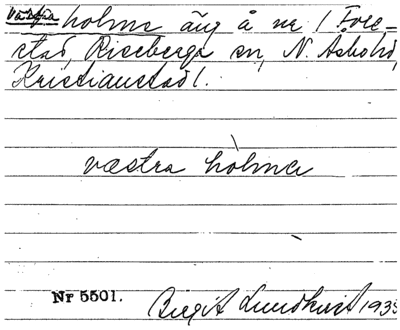 västra holma äng å nr 1 Före-
stad, Riseberga sn, N. Åsbo hd,
Kristianstad l.
væstra hòlmar
Nr 5501.
Birgit Lundkvist 1935